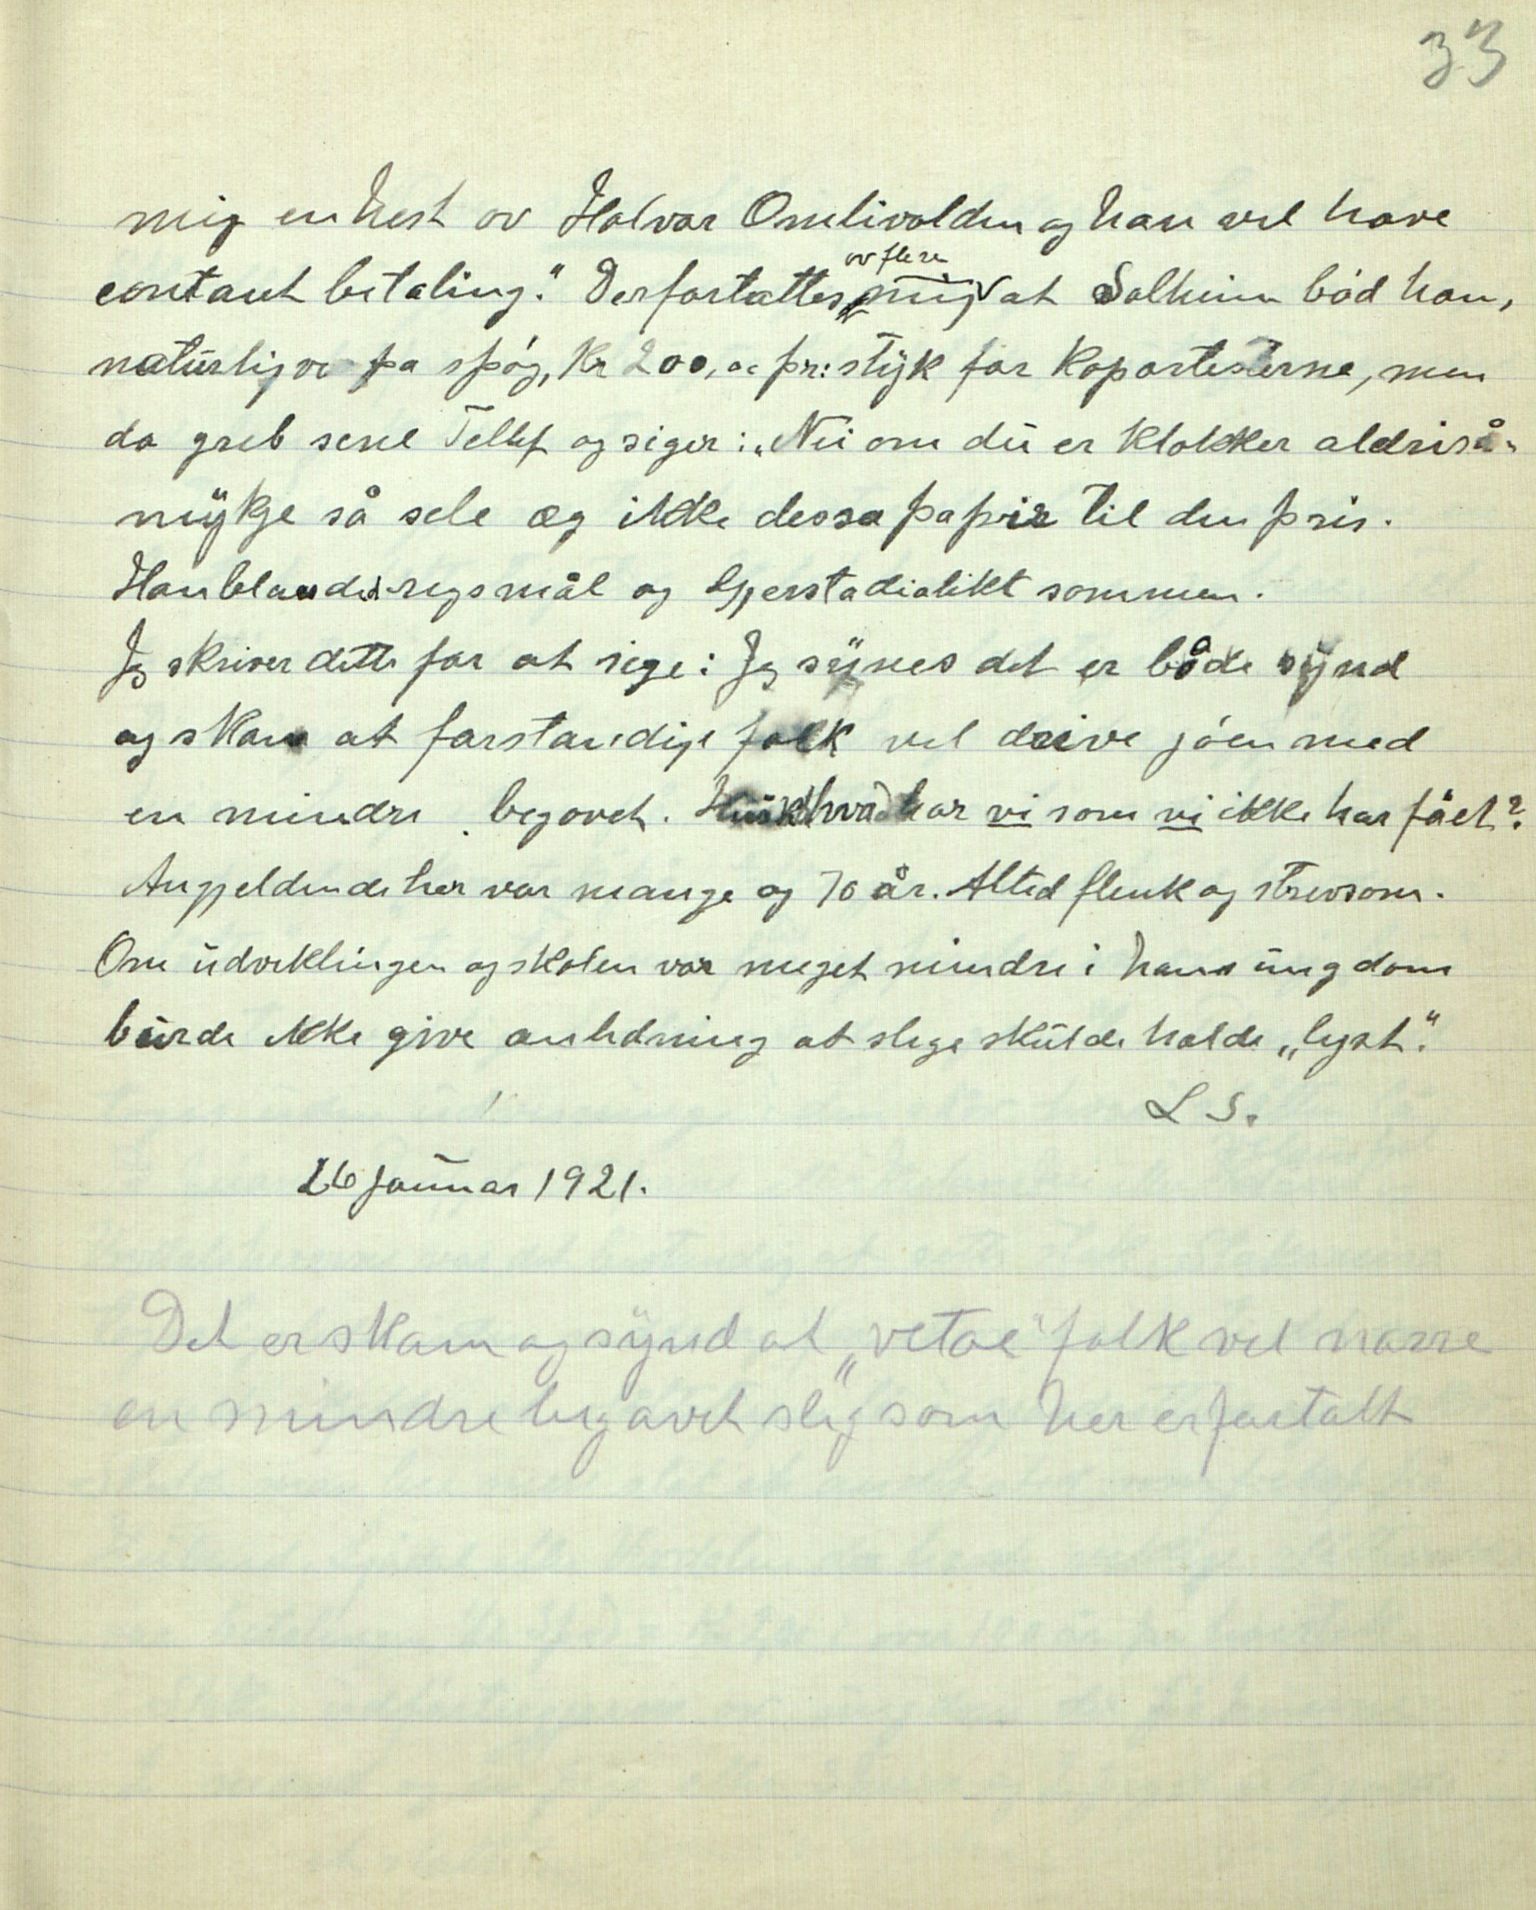 33
mig en hest ov Halvar Omlivolden og han vel have
contant betaling." Der fortaltes ov flere mig at Solheim bød ham,
naturligvis pa spøg, Kr 200,00 pr: styk for Kopartesterne, men
da greb sene Tellef og siger: "Nei om du er klokker aldri så
mykje så sele æg ikke dessa papir til den pris.
Han blander regsmål og Gjerstadialikt sommen.
Jeg skriver dette for at sige: Jeg synes det er både synd
og skam at forstandige folk vel drive jøen med
en mindre begavet. Husk hvad har vi som vi ikke har fået?
Angjeldende her var mange og 70 år. Altid flenk og strevsom.
Om udviklingen og skolen var meget mindre i hans ungdom
burde ikke give anledning at slege skulde holde „lyst".
L S.
26 januar 1921.
Det er skam og synd at „vetae" folk vel narre
en mindre begavet sleg som her er fortalt